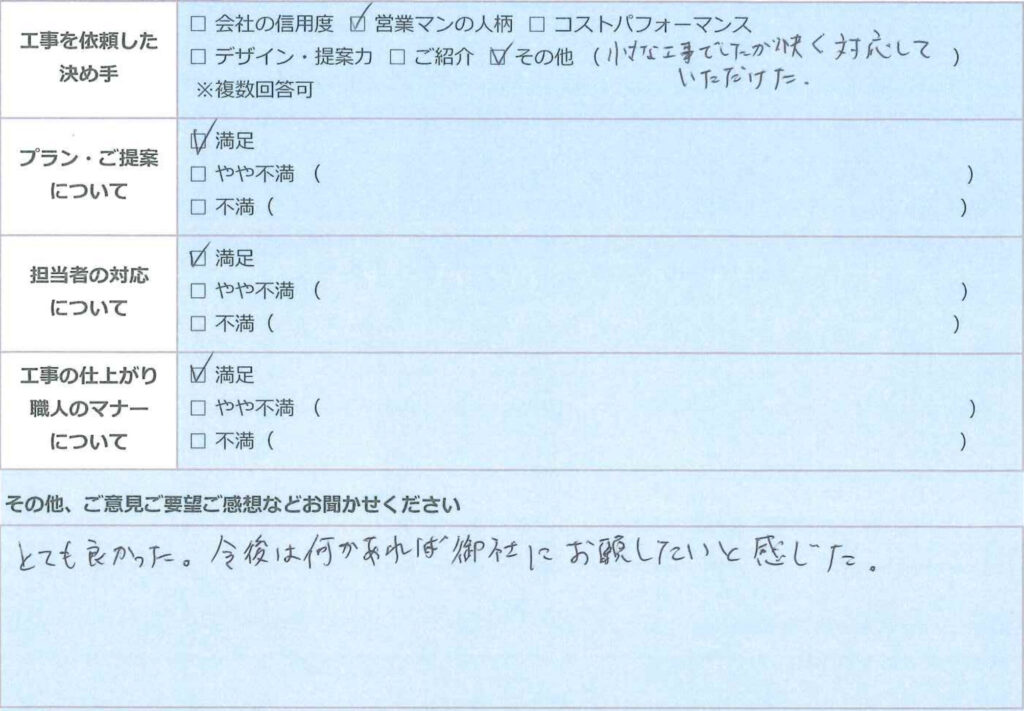 工事を依頼した
決め手
□ 会社の信用度 ☑ 営業マンの人柄 □ コストパフォーマンス
□ デザイン・提案力 □ ご紹介 ☑ その他 (小さな工事でしたが快く対応して
いただけた. )
※複数回答可
プラン・ご提案
について
☑ 満足
□ やや不満 ( )
□ 不満 ( )
担当者の対応
について
☑ 満足
□ やや不満 ( )
□ 不満 ( )
工事の仕上がり
職人のマナー
について
☑ 満足
□ やや不満 ( )
□ 不満 ( )
その他、ご意見ご要望ご感想などお聞かせください
とても良かった。今後は何かあれば御社にお願したいと感じた。